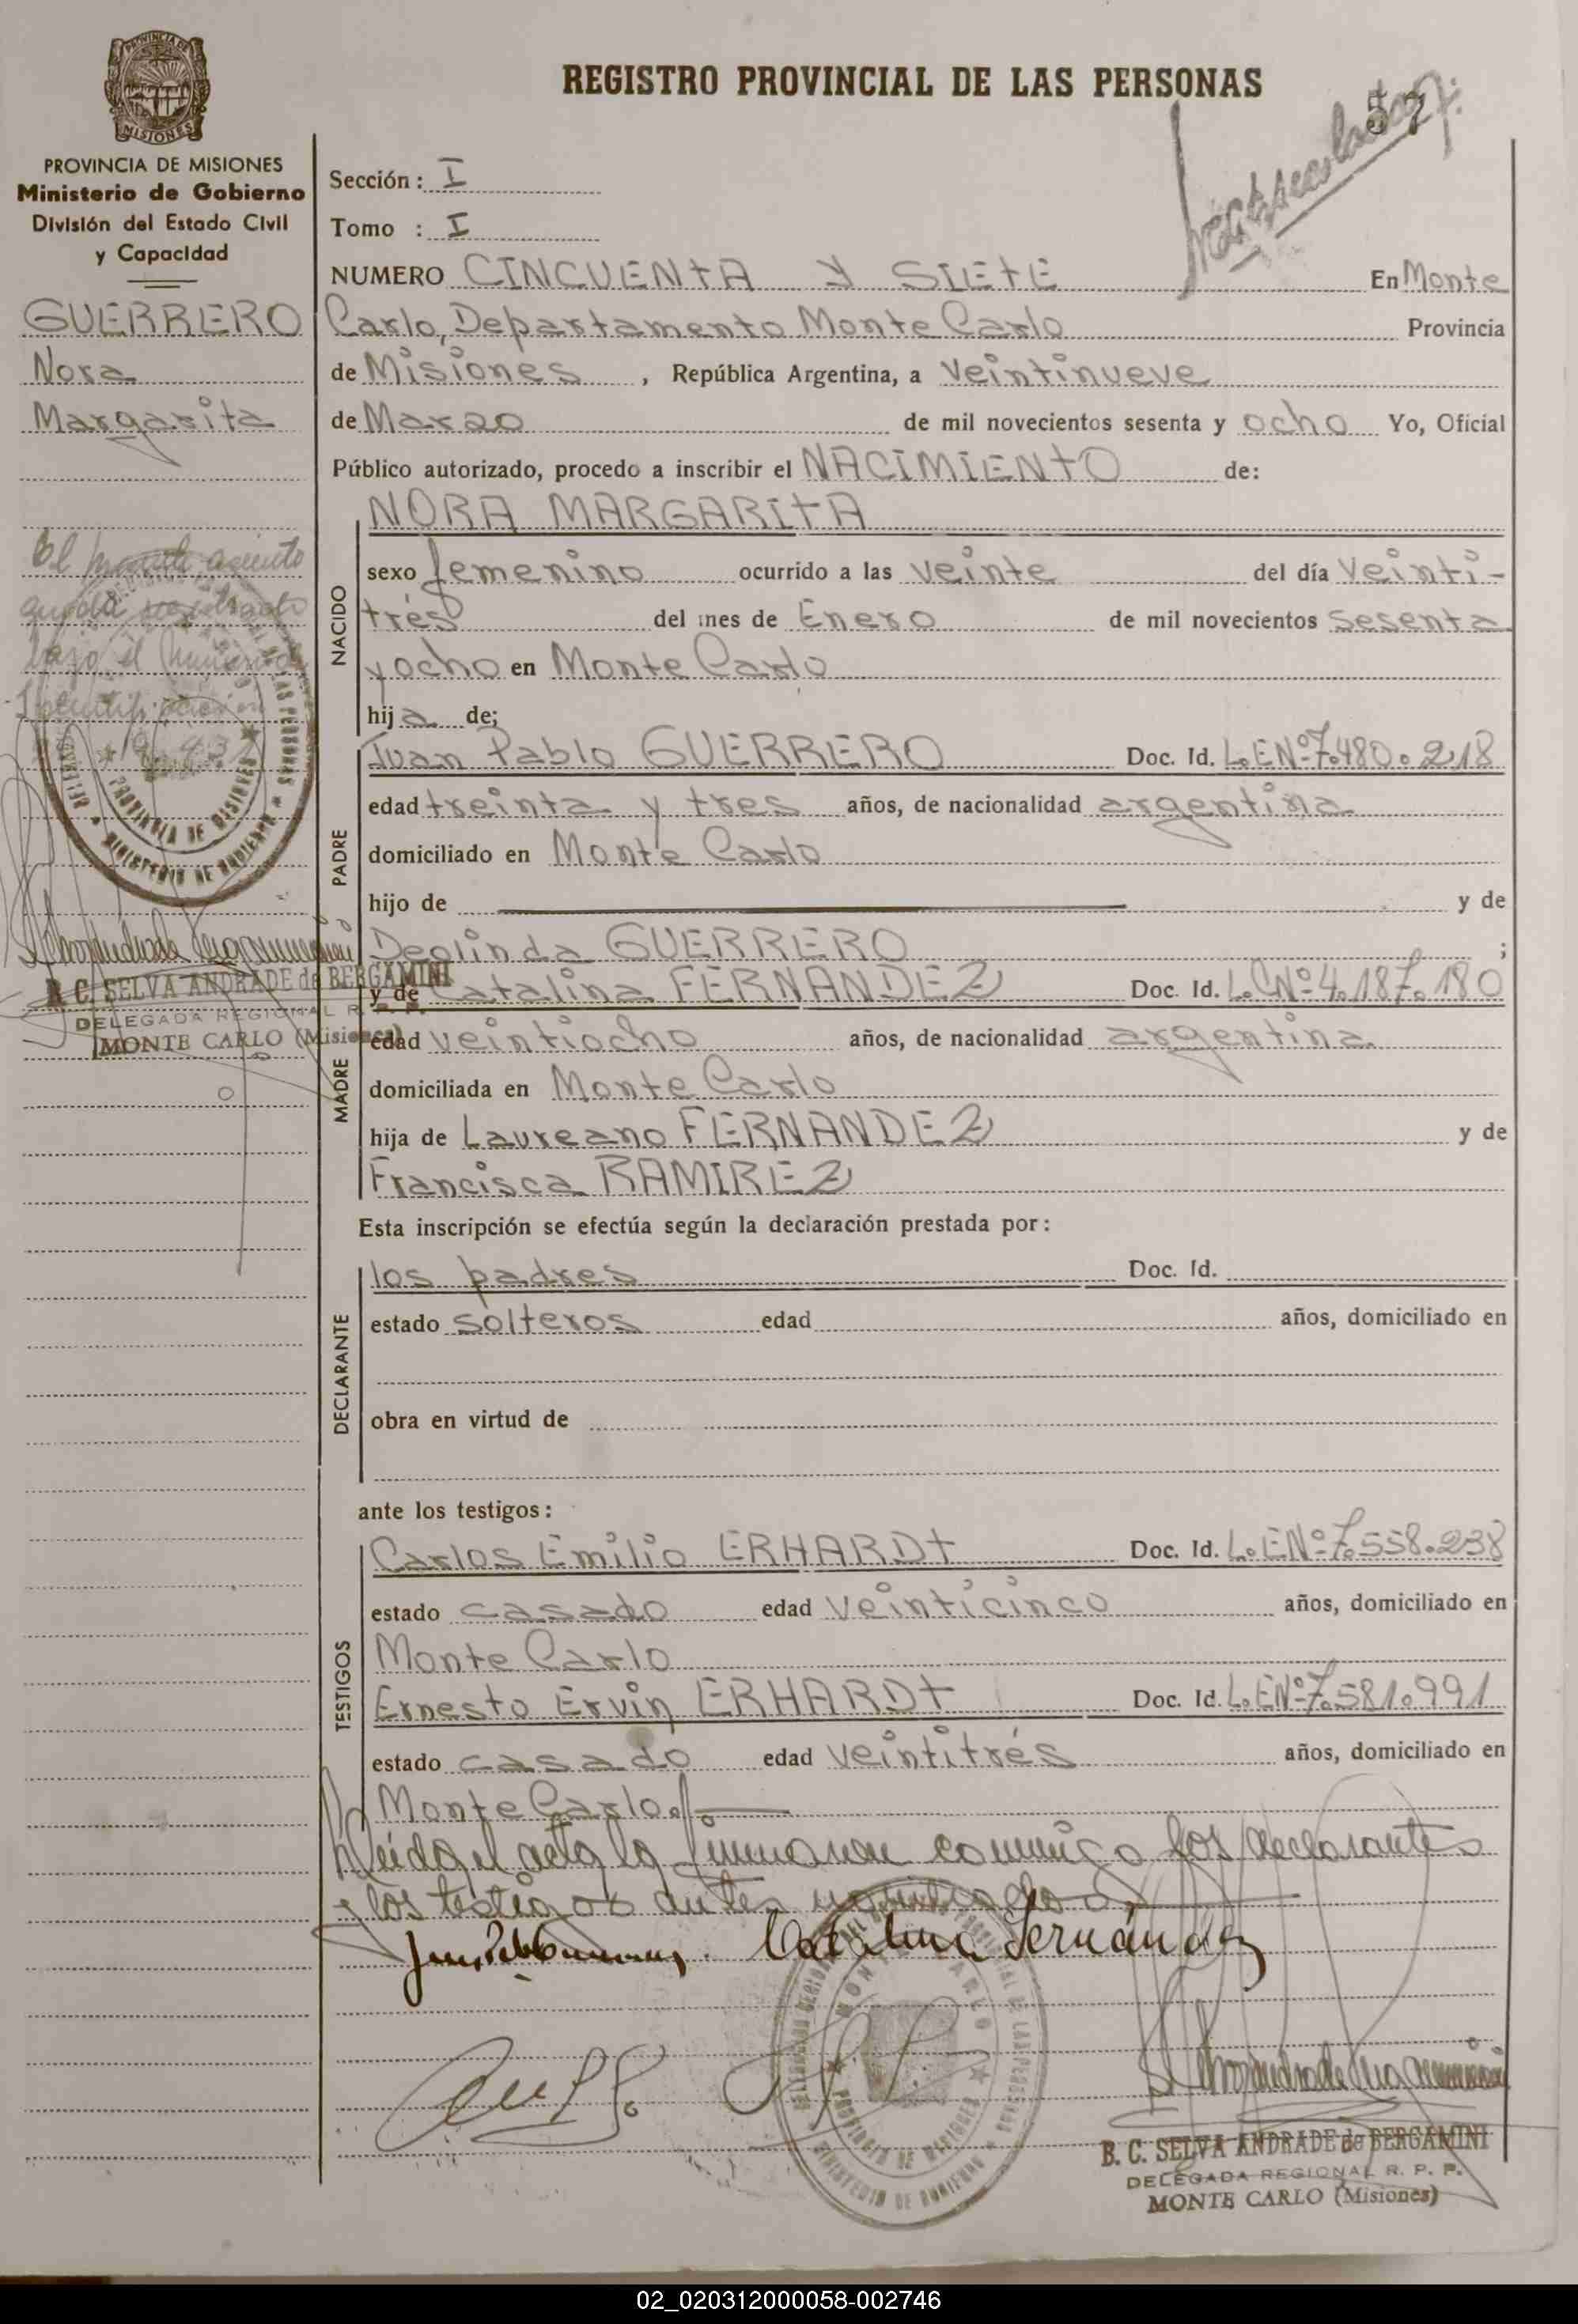 REGISTRO PROVINCIAL DE LAS PERSONAS
57
MISIONES
PROVINCIA DE MISIONES
Ministerio de Gobierno
División del Estado Civil
y Capacidad
GUERRERO
Nora
Margarita
El presente asiento
queda registrado
bajo el número de
Identificación
B. C. SELVA ANDRADE de BERGAMINI
DELEGADA REGIONAL R. P. P.
MONTE CARLO (Misiones)
Sección: I
Tomo : I
NUMERO CINCUENTA Y SIETE En Monte
Carlo, Departamento Monte Carlo Provincia
de Misiones, República Argentina, a Veintinueve
de Marzo de mil novecientos sesenta y ocho Yo, Oficial
Público autorizado, procedo a inscribir el NACIMIENTO de:
NACIDO
NORA MARGARITA
sexo femenino ocurrido a las veinte del día Veinti-
trés del mes de Enero de mil novecientos Sesenta
y ocho en Monte Carlo
hija de;
PADRE
Juan Pablo GUERRERO Doc. Id. L.E.Nº 7.480.218
edad treinta y tres años, de nacionalidad argentina
domiciliado en Monte Carlo
hijo de y de
Deolinda GUERRERO ;
MADRE
y de Catalina FERNANDEZ Doc. Id. L.C.Nº 4.187.180
edad veintiocho años, de nacionalidad argentina
domiciliada en Monte Carlo
hija de Laureano FERNANDEZ y de
Francisca RAMIREZ
Esta inscripción se efectúa según la declaración prestada por:
DECLARANTE
los padres Doc. Id.
estado solteros edad años, domiciliado en
obra en virtud de
ante los testigos:
TESTIGOS
Carlos Emilio ERHARDT Doc. Id. L.E.Nº 7.558.238
estado casado edad veinticinco años, domiciliado en
Monte Carlo
Ernesto Ervin ERHARDT Doc. Id. L.E.Nº 7.581.991
estado casado edad veintitrés años, domiciliado en
Monte Carlo.
Leída el acta la firmaron conmigo los declarantes
y los testigos antes nombrados
Catalina Fernández
B. C. SELVA ANDRADE de BERGAMINI
DELEGADA REGIONAL R. P. P.
MONTE CARLO (Misiones)
02_020312000058-002746